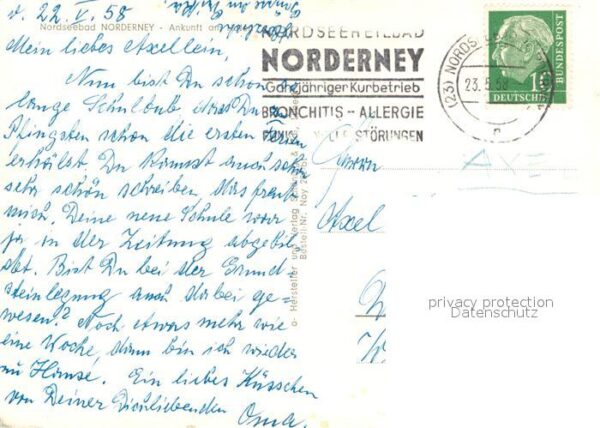 d. 22.V.58
Nordseebad NORDERNEY - Ankunft am
Mein liebes Axellein,
Nun bist Du schon
lange Schulbub, hast Du zu
Pfingsten schon die ersten
erhälst Du kannst auch schon
sehr schön schreiben, das freut
mich. Deine neue Schule war
ja in der Zeitung abgebil-
det. Bist Du bei der Grund
steinlegung auch dabei ge-
wesen? Noch etwas mehr wie
eine Woche, dann bin ich wieder
zu Hause. Ein liebes Küsschen
von Deiner Dichliebenden Oma.
Hersteller und Verlag
Bestell-Nr. Ney
NORDSEEHEILBAD
NORDERNEY
Ganzjähriger Kurbetrieb
BRONCHITIS - ALLERGIE
STÖRUNGEN
(23) NORD
23.5.58
10
DEUTSCHE
BUNDESPOST
AXEL
Axel
privacy protection
Datenschutz